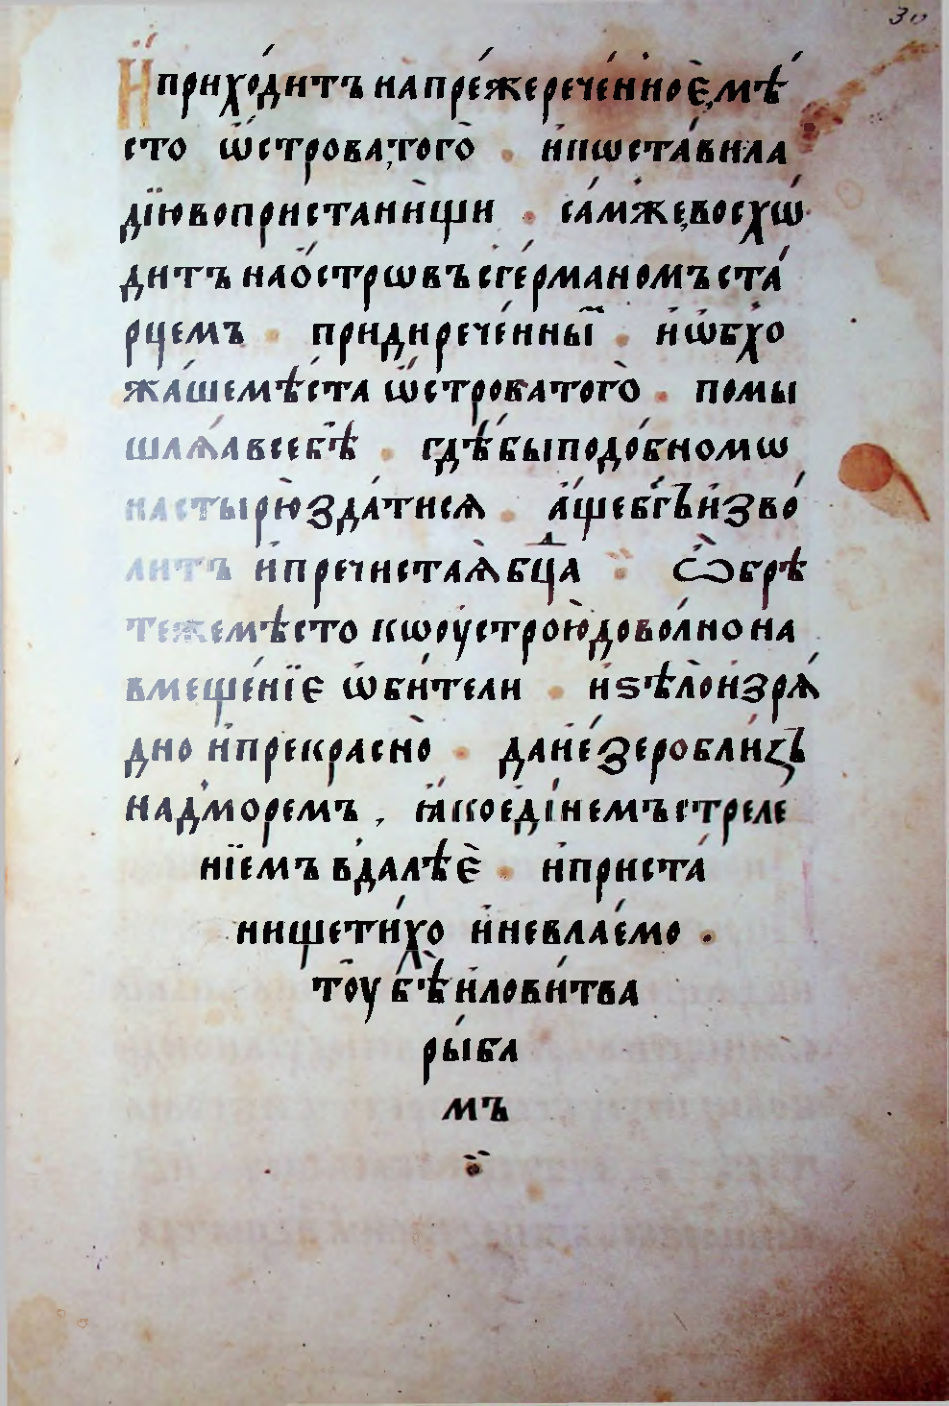 30
И҆ прихо́дитъ на пре́жеречен́ное мѣ́
сто ѡ҆строва того̀ . и҆ и҆ѡста́в ила
дїю во пристани́щи . са́м же восхѡ́
дитъ на о́стрѡвъ с ге́рманомъ ста́
рцемъ . приⷣречен́ныⷨ . и҆ ѡ҆бхо́
жа́ше мѣ́ста ѡ҆строва того̀ . помы
шлѧ́ѧ в себѣ̀ . гдѣ́ бы подо́бно мѡ
настырю̀ зда́тисѧ . а҆́ще бг҃ъ и҆зво́
литъ и҆ пречистаѧ̀ бц҃а . ѡ҆брѣ
те же мѣсто к ѡустрою̀ дово́лно на
вмеще́нїе ѡ҆би́тели . и҆ ѕѣло̀ и҆зрѧ́
дно и҆ прекрасно̀ . да и҆ е́зеро близъ
над моремъ , ꙗ҆ко еди́нем ъ стреле
нїемъ вдалѣѐ . и҆ приста́
нище ти́хо и҆ невлае́мо .
тоу̀ бѣ̀ и҆ лови́тва
ры́ба
мъ